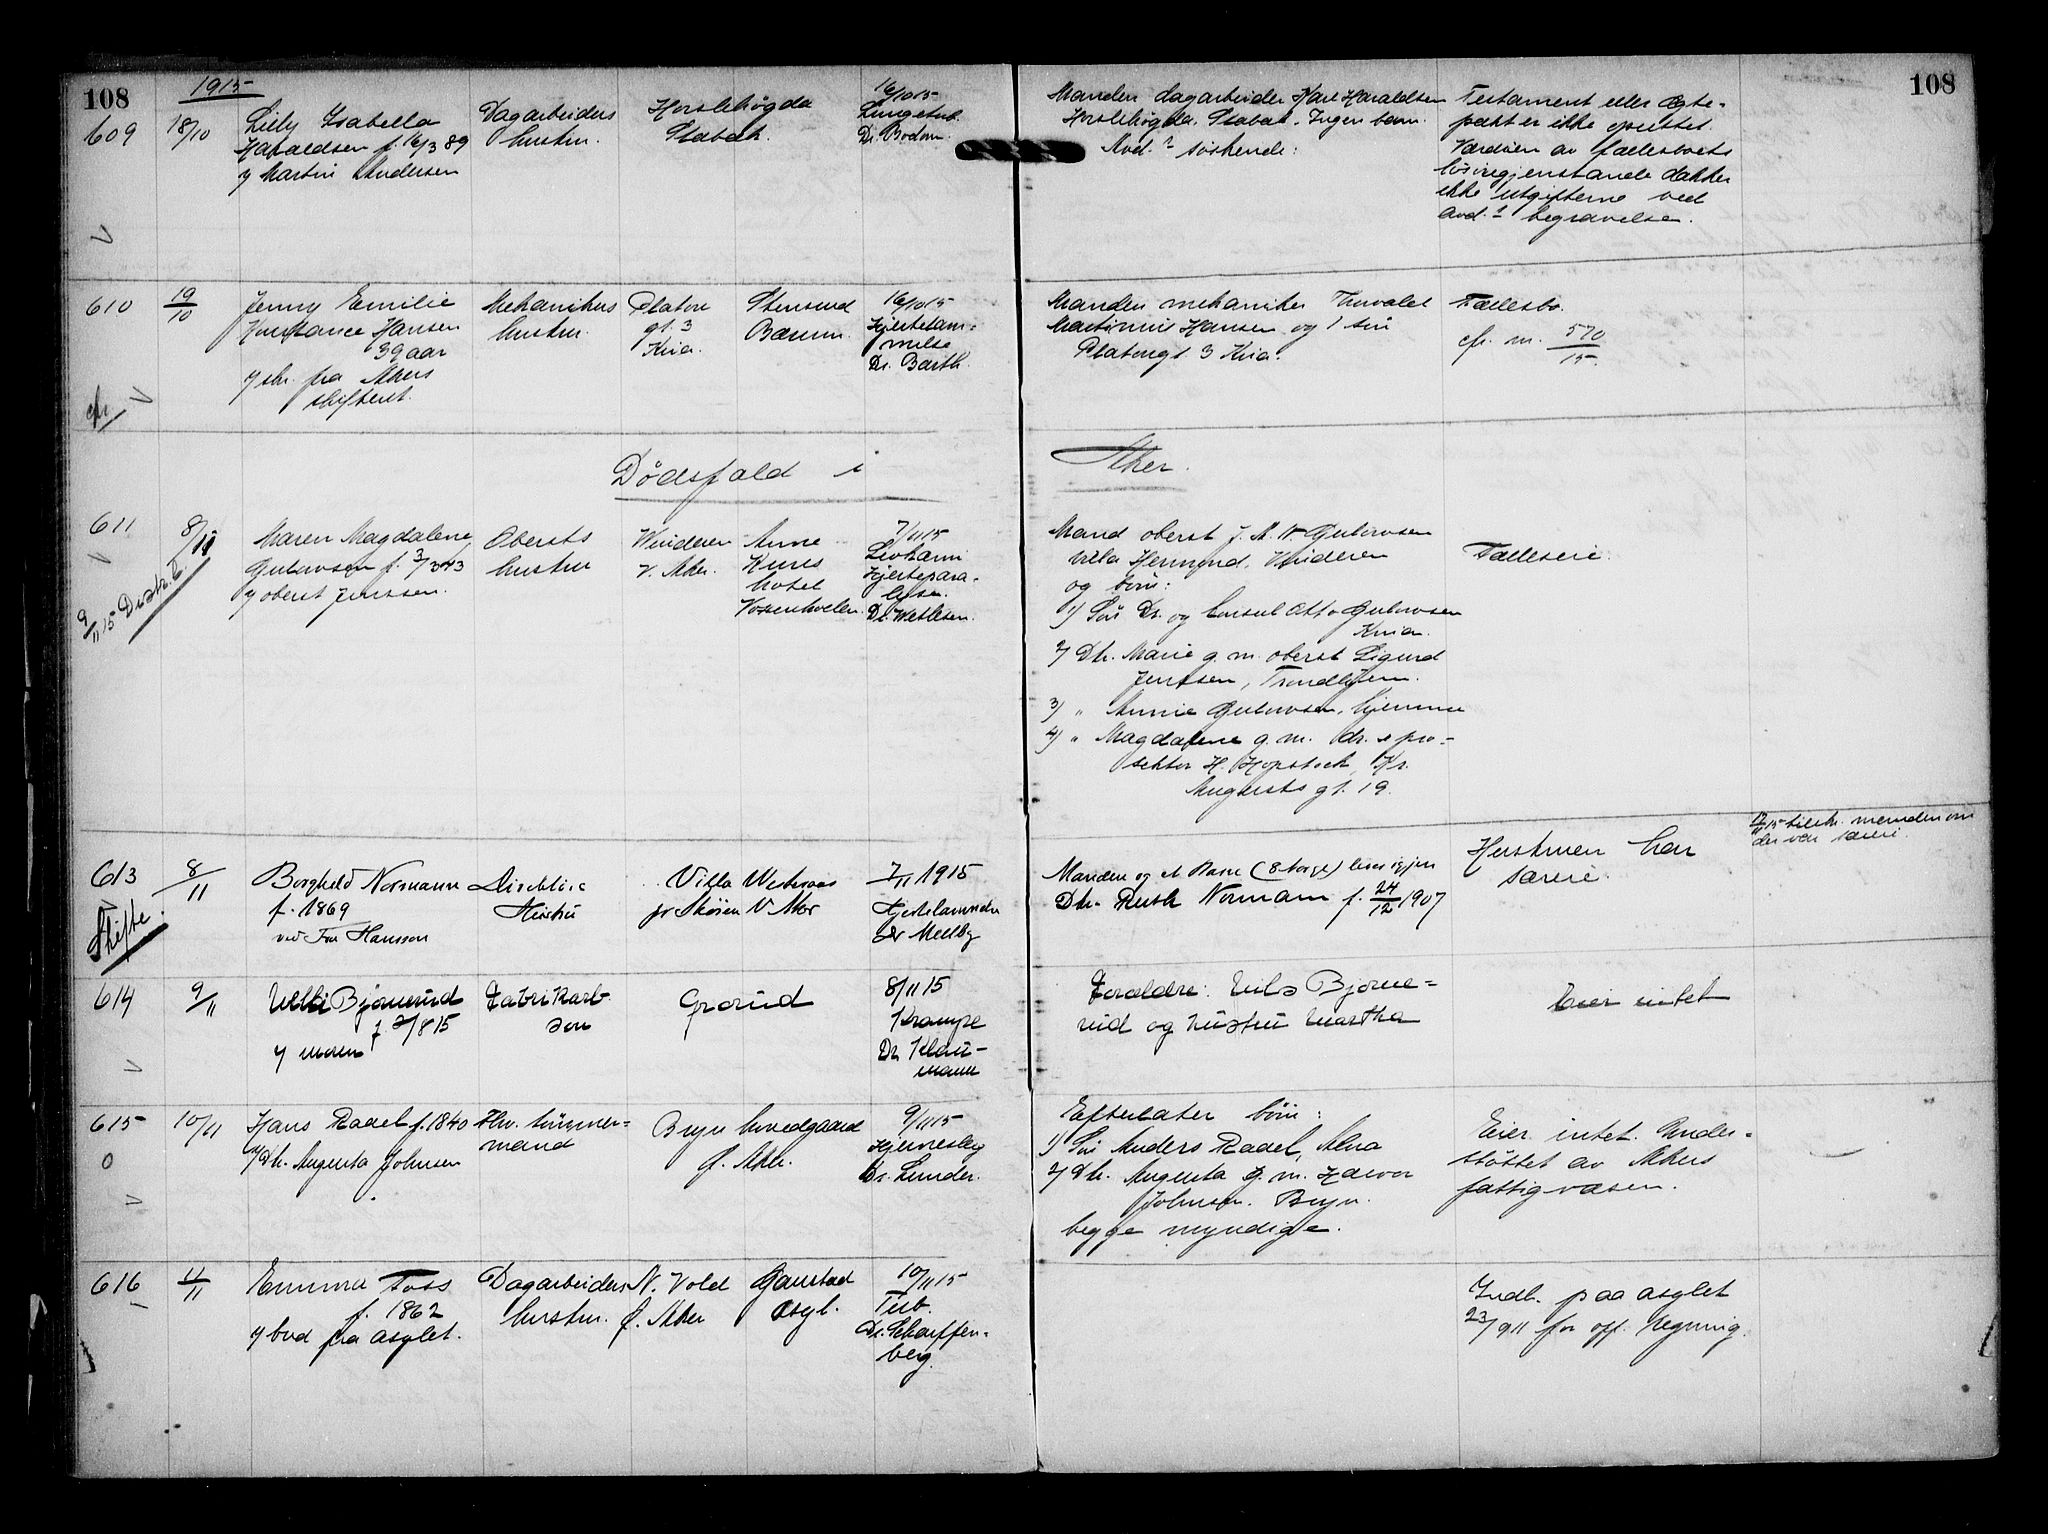 108
1915
108
609
18/10
Lilly Isabella
Haraldsen f. 16/3 89
v/ Martin Andersen
Dagarbeiders
hustru.
Horslehøgda
Stabæk.
16/10 15
Lungetub.
Dr. Bodom.
Manden dagarbeider Karl Haraldsen
Horslehøgda, Stabæk. Ingen barn.
Avd.s søskende:
Testament eller ægte-
pakt er ikke oprettet.
Værdien av fællesboets
løsøregjenstande dækker
ikke utgifterne ved
avd.s begravelse.
610
19/10
Jenny Emilie
Hansen
39 aar
v/ skr. fra Akers
skifteret.
cfr
Mekanikers
hustru.
Platou
gt. 3
Kria.
Stensrud
Bærum.
16/10 15
Hjertelam-
melse
Dr. Barth.
Manden mekaniker Thorvald
Martinius Hansen og 1 søn
Platousgt 3 Kria.
Fællesbo.
cfr. m. 570/15.
Dødsfald i
Aker.
611
8/11
9/11 15 Distr. I.
Maren Magdalene
Gulowsen f. 3/3 43
v/ oberst Jenssen.
Obersts
hustru
Vinderen
V. Aker.
Anne
Kures
hotel
Voxenkolen.
7/11 15
Hjertepara-
lyse.
Dr. Wetlesen.
Mand oberst J. A. W. Gulowsen
villa Hermond, Vinderen
og børn:
1) Søn Dr. og konsul Otto Gulowsen
Kria.
2) Dtr. Marie g. m. oberst Sigurd
Jenssen, Trondhjem.
3) " Annie Gulowsen, hjemme
4) " Magdalene g. m. dr. & pro-
sektor H. Hopstock, Kr.
Augusts gt. 19.
Felleseie.
613
Skifte.
8/11
Borghild Normann
f. 1869
ved Fru Hansson
Direktørs
Hustru
Villa Westeraas
pr Skøien V Aker
7/11 1915
Hjertelammelse
Dr Mellby
Manden og et Barn (8 aarige) lever igjen
Dtr. Ruth Normann f. 24/12 1907
Hustruen har
særeie.
12/11 15 tilskr. manden om
der var særeie.
614
9/11
Bjørnerud
f 2/8 15
v/ moren
Fabrikarb.
søn
Grorud
8/11 15
Krampe
Dr. Klau-
mann
Forældre: Nils Bjørne-
rud og hustru Martha
Eier intet
615
0
10/11
Hans Raael f. 1840
v/ Dtr. Augusta Johnsen
Fhv. tømmer-
mand
Bryn hovedgaard
Ø. Aker.
9/11 15
Hjerneslag
Dr. Lunder.
Efterlater børn:
1) Søn Anders Raael, Alna
2) Dtr. Augusta g. m. Halvor
Johnsen. Bryn.
begge myndige.
Eier intet. Under-
støttet av Akers
fattigvæsen.
616
11/11
Emma Foss
f. 1862
v/ bud fra asylet.
Dagarbeiders
hustru.
N. Vold
Ø. Aker
Gaustad
asyl.
10/11 15
Tub.
Dr. Scharffen-
berg.
Indl. paa asylet
23/9 11 for off. regning.